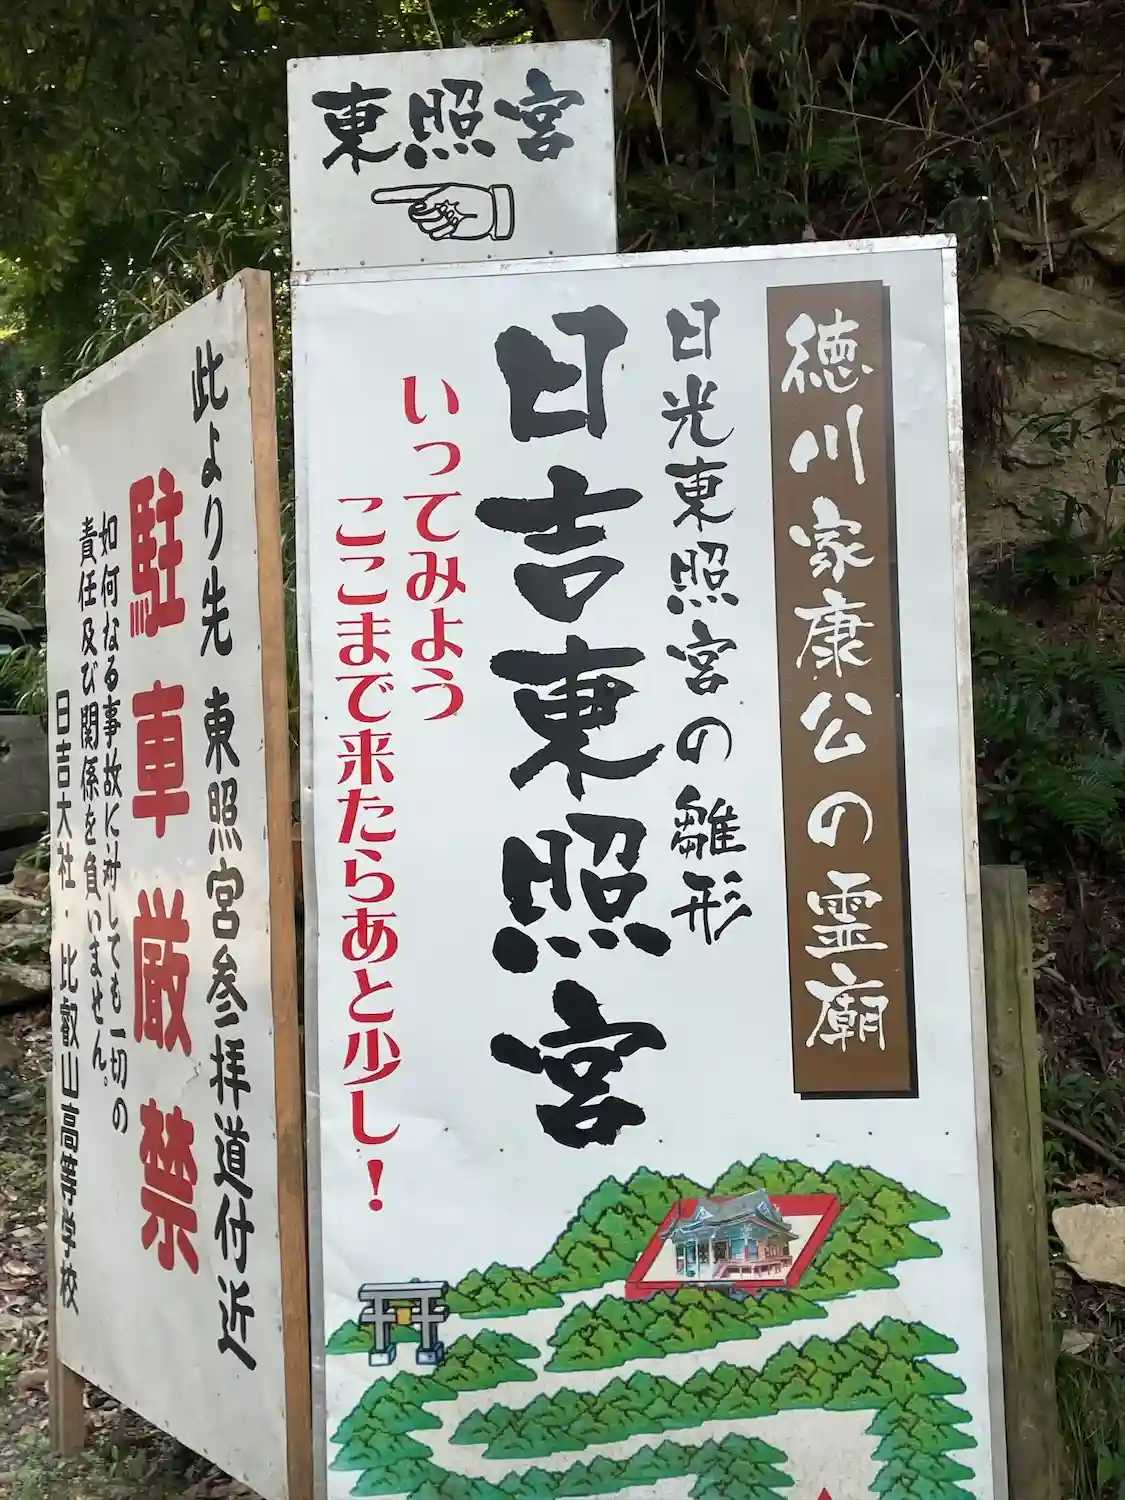 東照宮
徳川家康公の霊廟
日光東照宮の雛形
日吉東照宮
いってみよう
ここまで来たらあと少し!
此より先 東照宮参拝道付近
駐車厳禁
如何なる事故に対しても一切の
責任及び関係を負いません。
日吉大社・比叡山高等学校